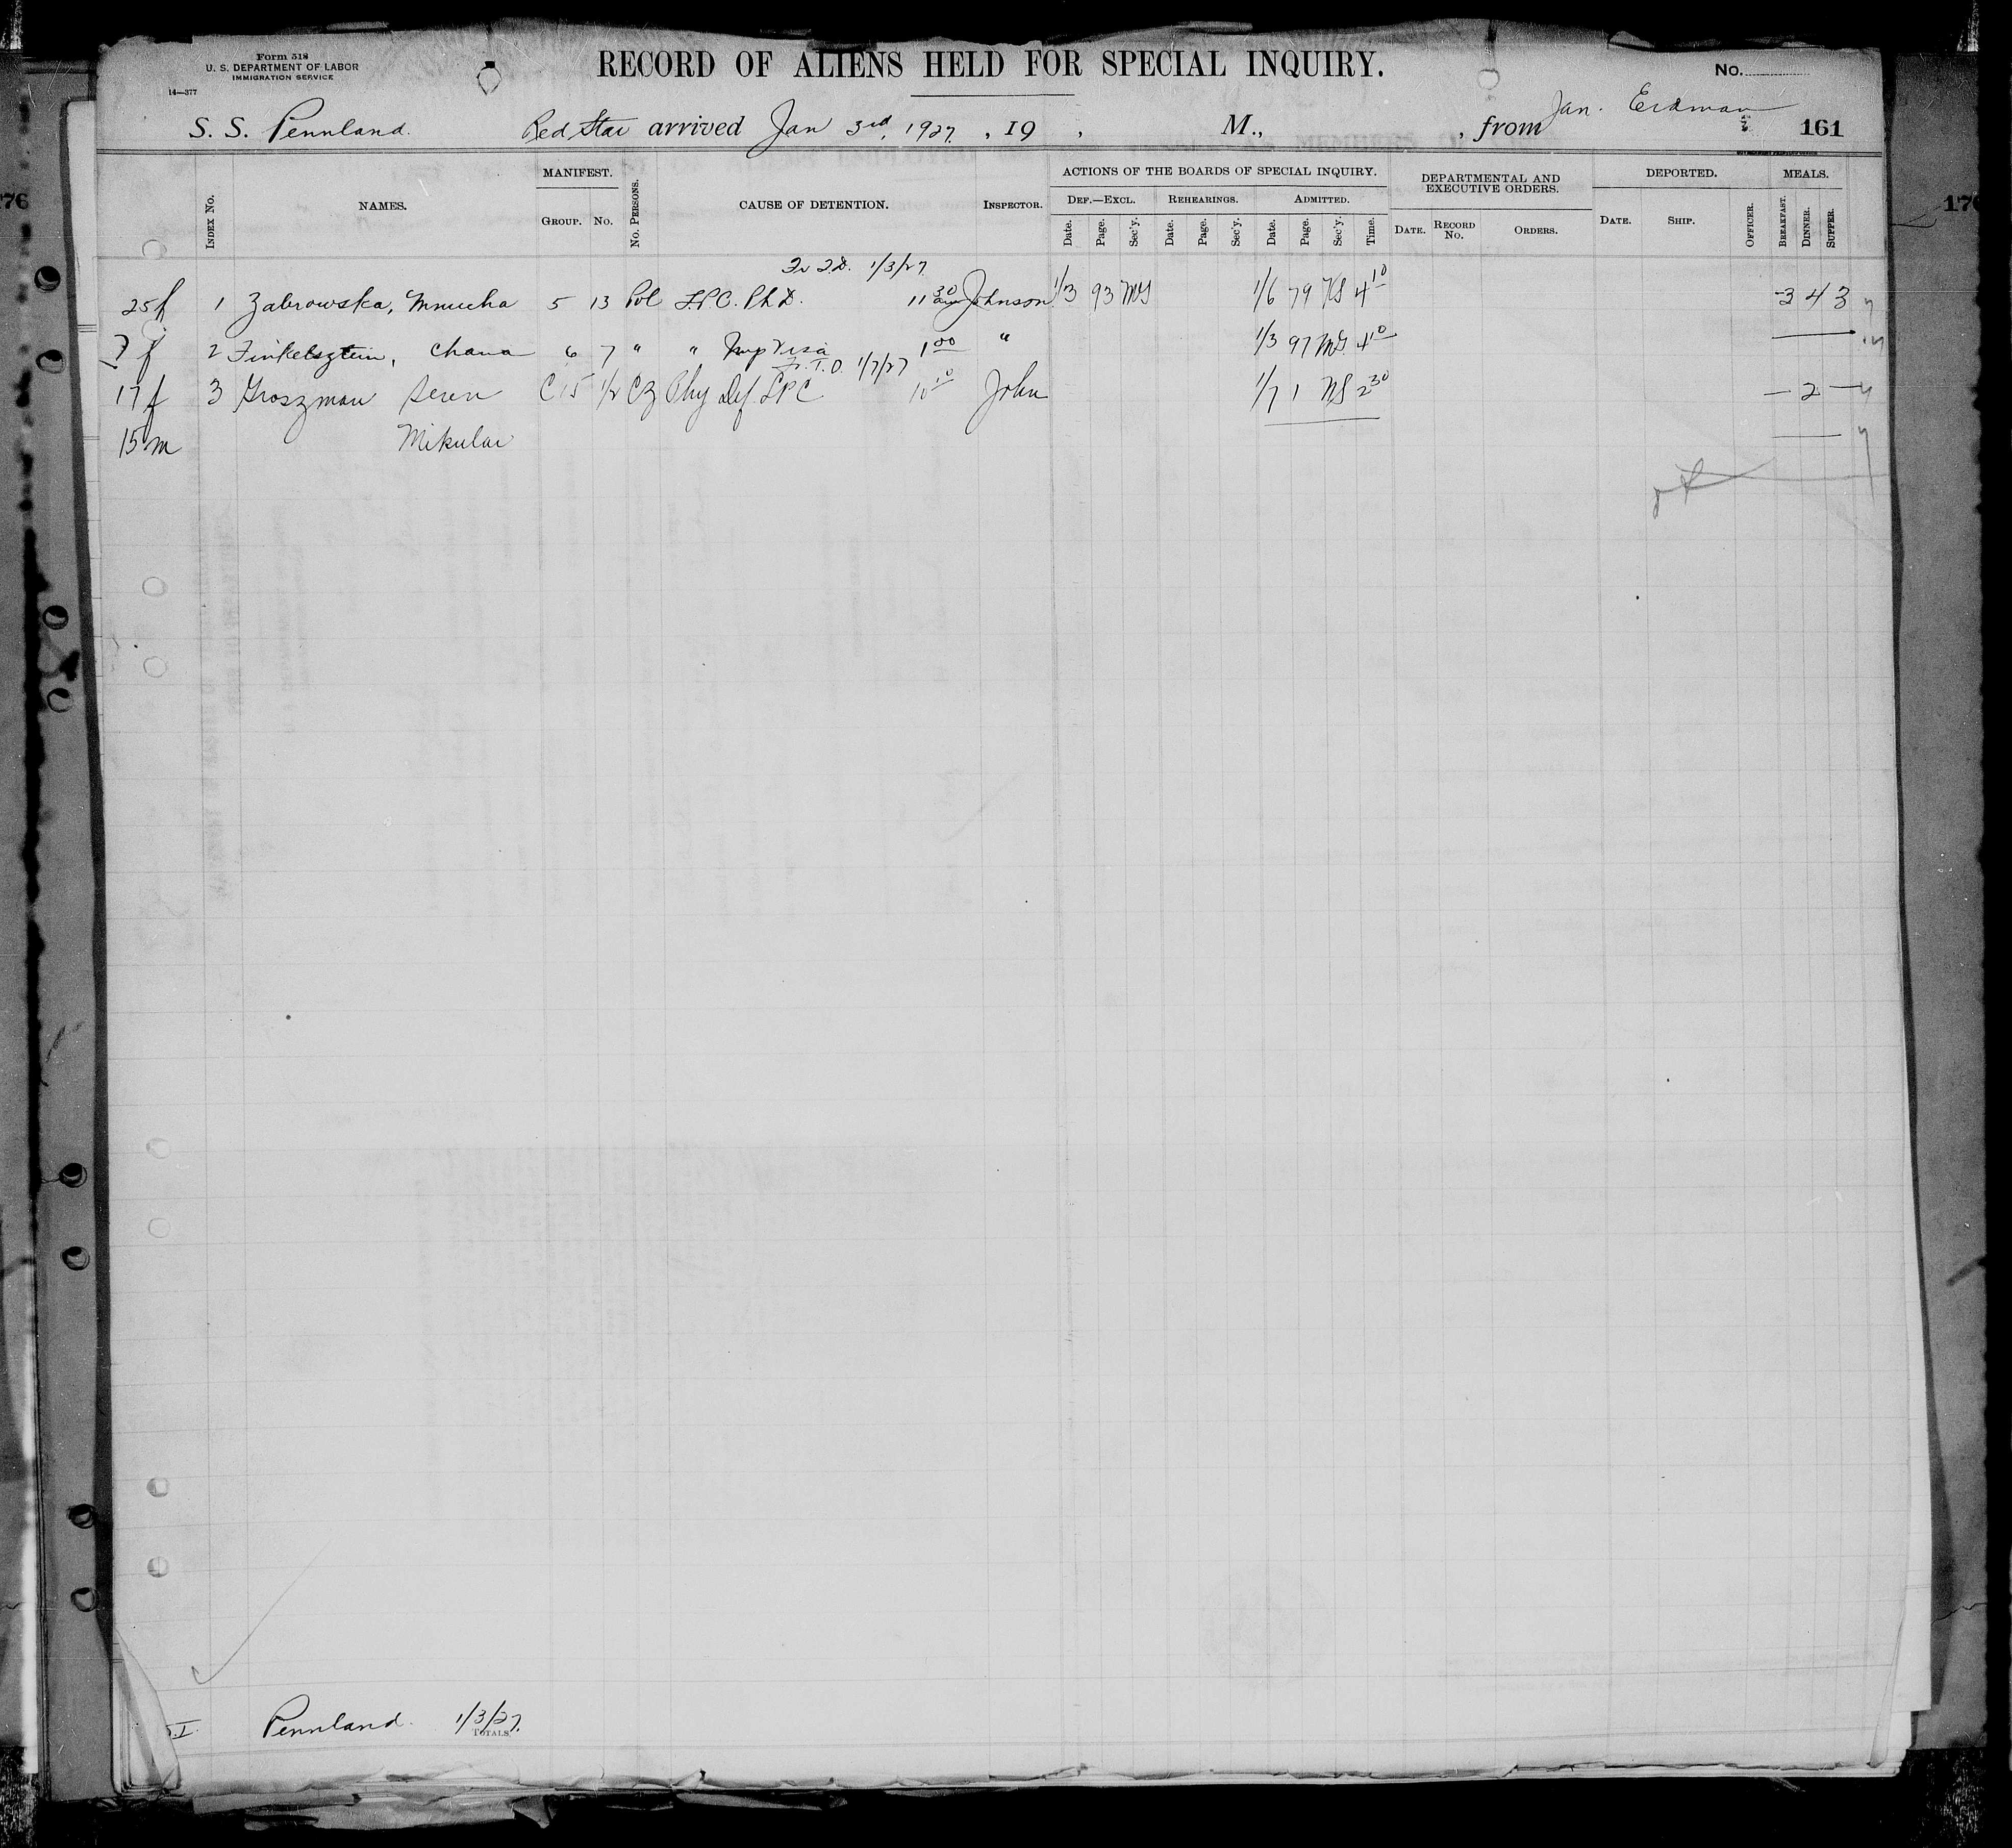 Form 518
U. S. DEPARTMENT OF LABOR
IMMIGRATION SERVICE
14—377
RECORD OF ALIENS HELD FOR SPECIAL INQUIRY.
No.
S. S. Pennland. Red Star arrived Jan 3rd, 1927. , 19 , M., , from Jan. Erdman 161
INDEX NO. NAMES. MANIFEST. GROUP. NO. NO. PERSONS. CAUSE OF DETENTION. INSPECTOR. ACTIONS OF THE BOARDS OF SPECIAL INQUIRY. DEF.—EXCL. Date. Page. Sec'y. REHEARINGS. Date. Page. Sec'y. ADMITTED. Date. Page. Sec'y. Time. DEPARTMENTAL AND EXECUTIVE ORDERS. DATE. RECORD NO. ORDERS. DEPORTED. DATE. SHIP. OFFICER. MEALS. BREAKFAST. DINNER. SUPPER.
1/3/27
25 f 1 Zabrowska, Mnucha 5 13 Pol L.P.C. Ph D. 11 30 am Johnson 1/3 93 MS 1/6 79 4 10 3 4 3
7 f 2 Finkelsztein, Chana 6 7 " " Imp Visa 1 00 " 1/3 97 4 10
T.D. 1/7/27
17 f 3 Groszman Seren C 15 1/2 Cz Phy Def LPC 10 10 John 1/7 1 NS 2 30 — 2 —
15 m Mikular
176
S.I. Pennland. 1/3/27.
TOTALS